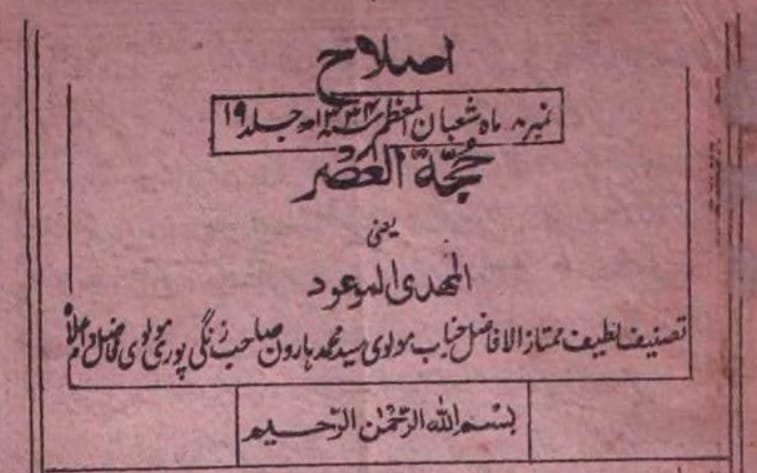 اصلاح
نمبر ۸ ماہ شعبان المعظم سنہ ۱۳۳۴ھ جلد ۱۹
حُجّۃ العَصْر
یعنی
المہدی الموعود
تصنیف لطیف ممتاز الافاضل جناب مولوی سید محمد ہارون صاحب زنگی پوری مولوی فاضل دام علاہ
بسم اللہ الرّحمٰن الرّحیم